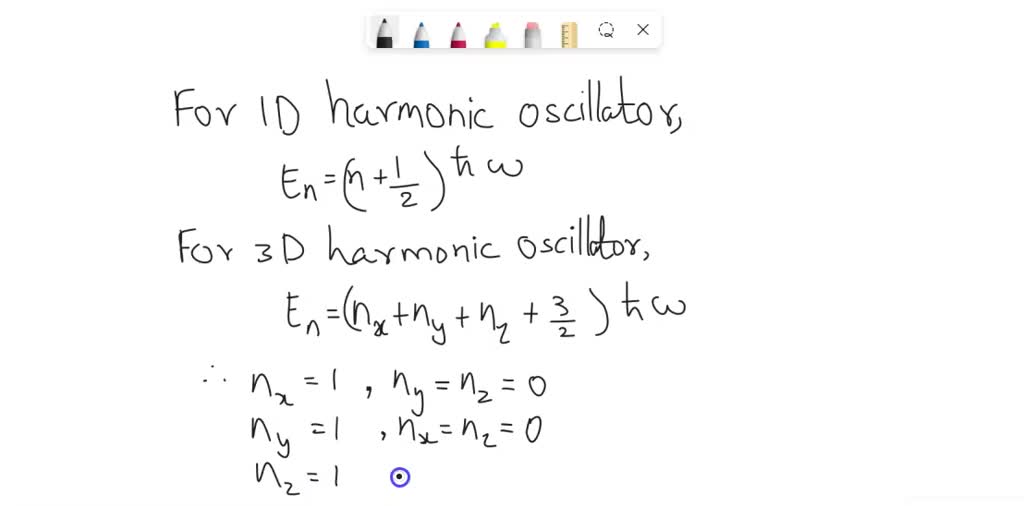 For 1D harmonic oscillator,
En = (n + 1/2) ħ ω
For 3D harmonic oscilltor,
En = (nx + ny + nz + 3/2) ħ ω
∴ nx = 1 , ny = nz = 0
ny = 1 , nx = nz = 0
nz = 1